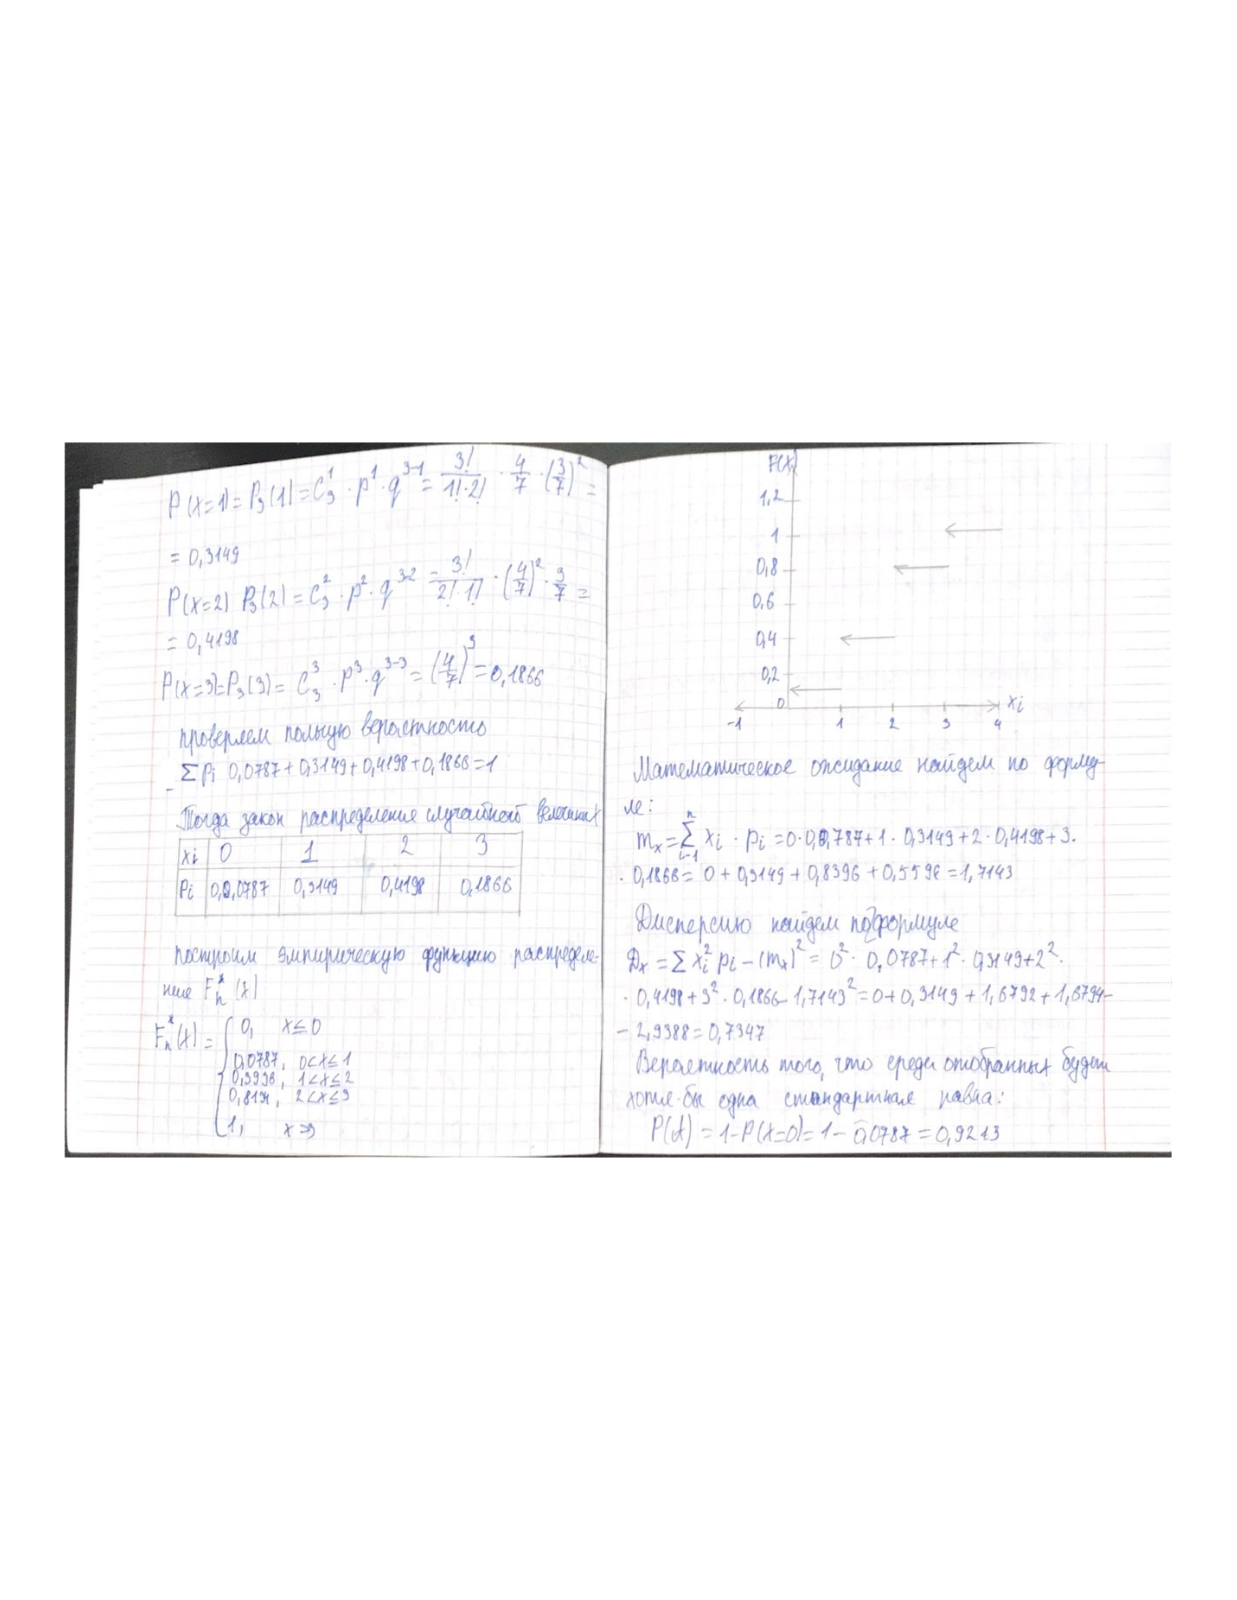 P(X=1)=P₃(1)=C₃¹·p¹·q³⁻¹=3!/(1!·2!)·4/7·(3/7)²=
=0,3149
P(X=2) P₃(2)=C₃²·p²·q³⁻²=3!/(2!·1!)·(4/7)²·3/7=
=0,4198
P(X=3)=P₃(3)=C₃³·p³·q³⁻³=(4/7)³=0,1866
проверяем полную
Σpi 0,0787+0,3149+0,4198+0,1866=1
Тогда закон распределение случайной
xi 0 1 2 3
Pi 0,0787 0,3149 0,4198 0,1866
построим эмпирическую функцию распределе-
ние Fₙ*(x)
Fₙ*(x)= { 0, x≤0
0,0787, 0<x≤1
0,3936, 1<x≤2
0,8134, 2<x≤3
1, x>3
F(x)
1,2
1
0,8
0,6
0,4
0,2
0
-1 1 2 3 4 xi
Математическое ожидание найдем по форму-
ле:
mx=Σⁿᵢ₌₁ xi·pi=0·0,0787+1·0,3149+2·0,4198+3·
·0,1866=0+0,3149+0,8396+0,5598=1,7143
Дисперсию найдем по формуле
Dx=Σxi²pi-(mx)²=0²·0,0787+1²·0,3149+2²·
·0,4198+3²·0,1866-1,7143²=0+0,3149+1,6792+1,6794-
-2,9388=0,7347
того, что среди отобранных будет
хотя бы одна стандартная равна:
P(A)=1-P(X=0)=1-0,0787=0,9213